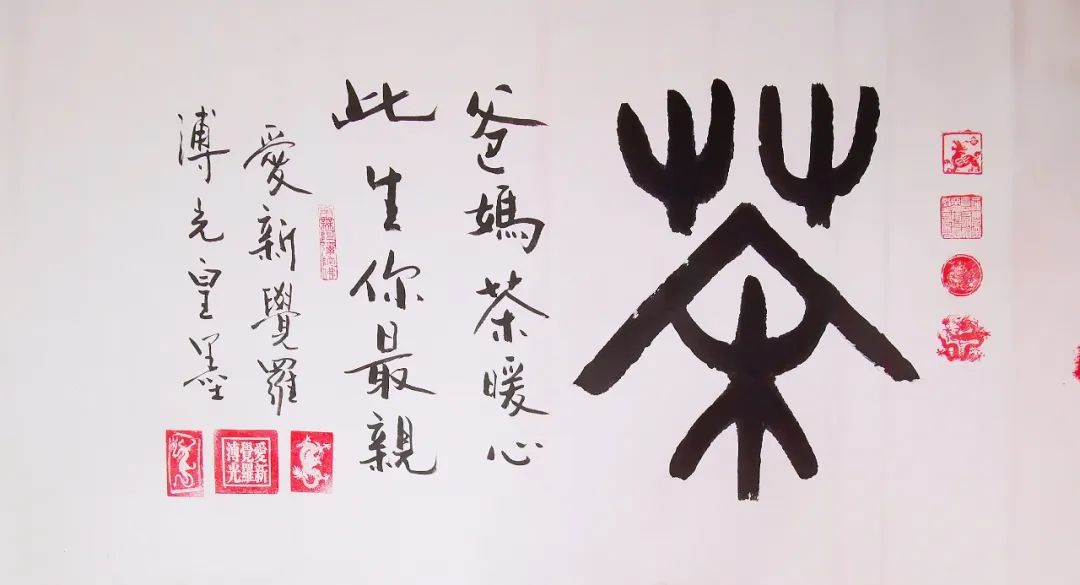 茶
爸媽茶暖心
此生你最親
愛新覺羅
溥光皇墨
愛新覺羅溥光